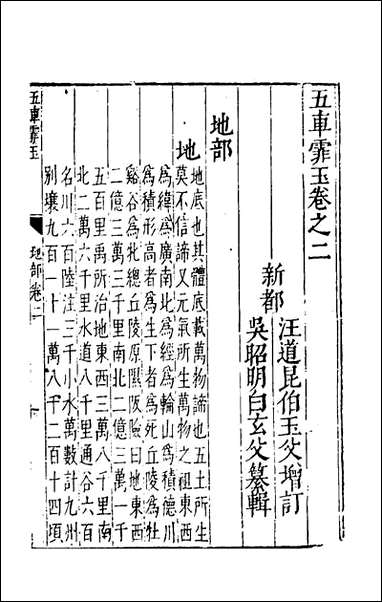 五車霏玉卷之二
新都
汪道昆伯玉父增訂
吳昭明白玄父纂輯
地部
地
地底也其體底載萬物諦也五土所生
莫不信諦又元氣所生萬物之祖東西
爲緯爲廣南北爲經爲輪山爲積德川
爲積形高者爲生下者爲死丘陵爲牡
谿谷爲牝總丘陵原隰阪險曰地東西
二億三萬三千里南北二億三萬一千
五百里禹所治地東西三萬八千里南
北二萬六千里水道八千里通谷六百
名川六百陸注三千小水萬數計九州
別壤九百一十一萬八千二百十四頃
五車霏玉
地部卷二
一